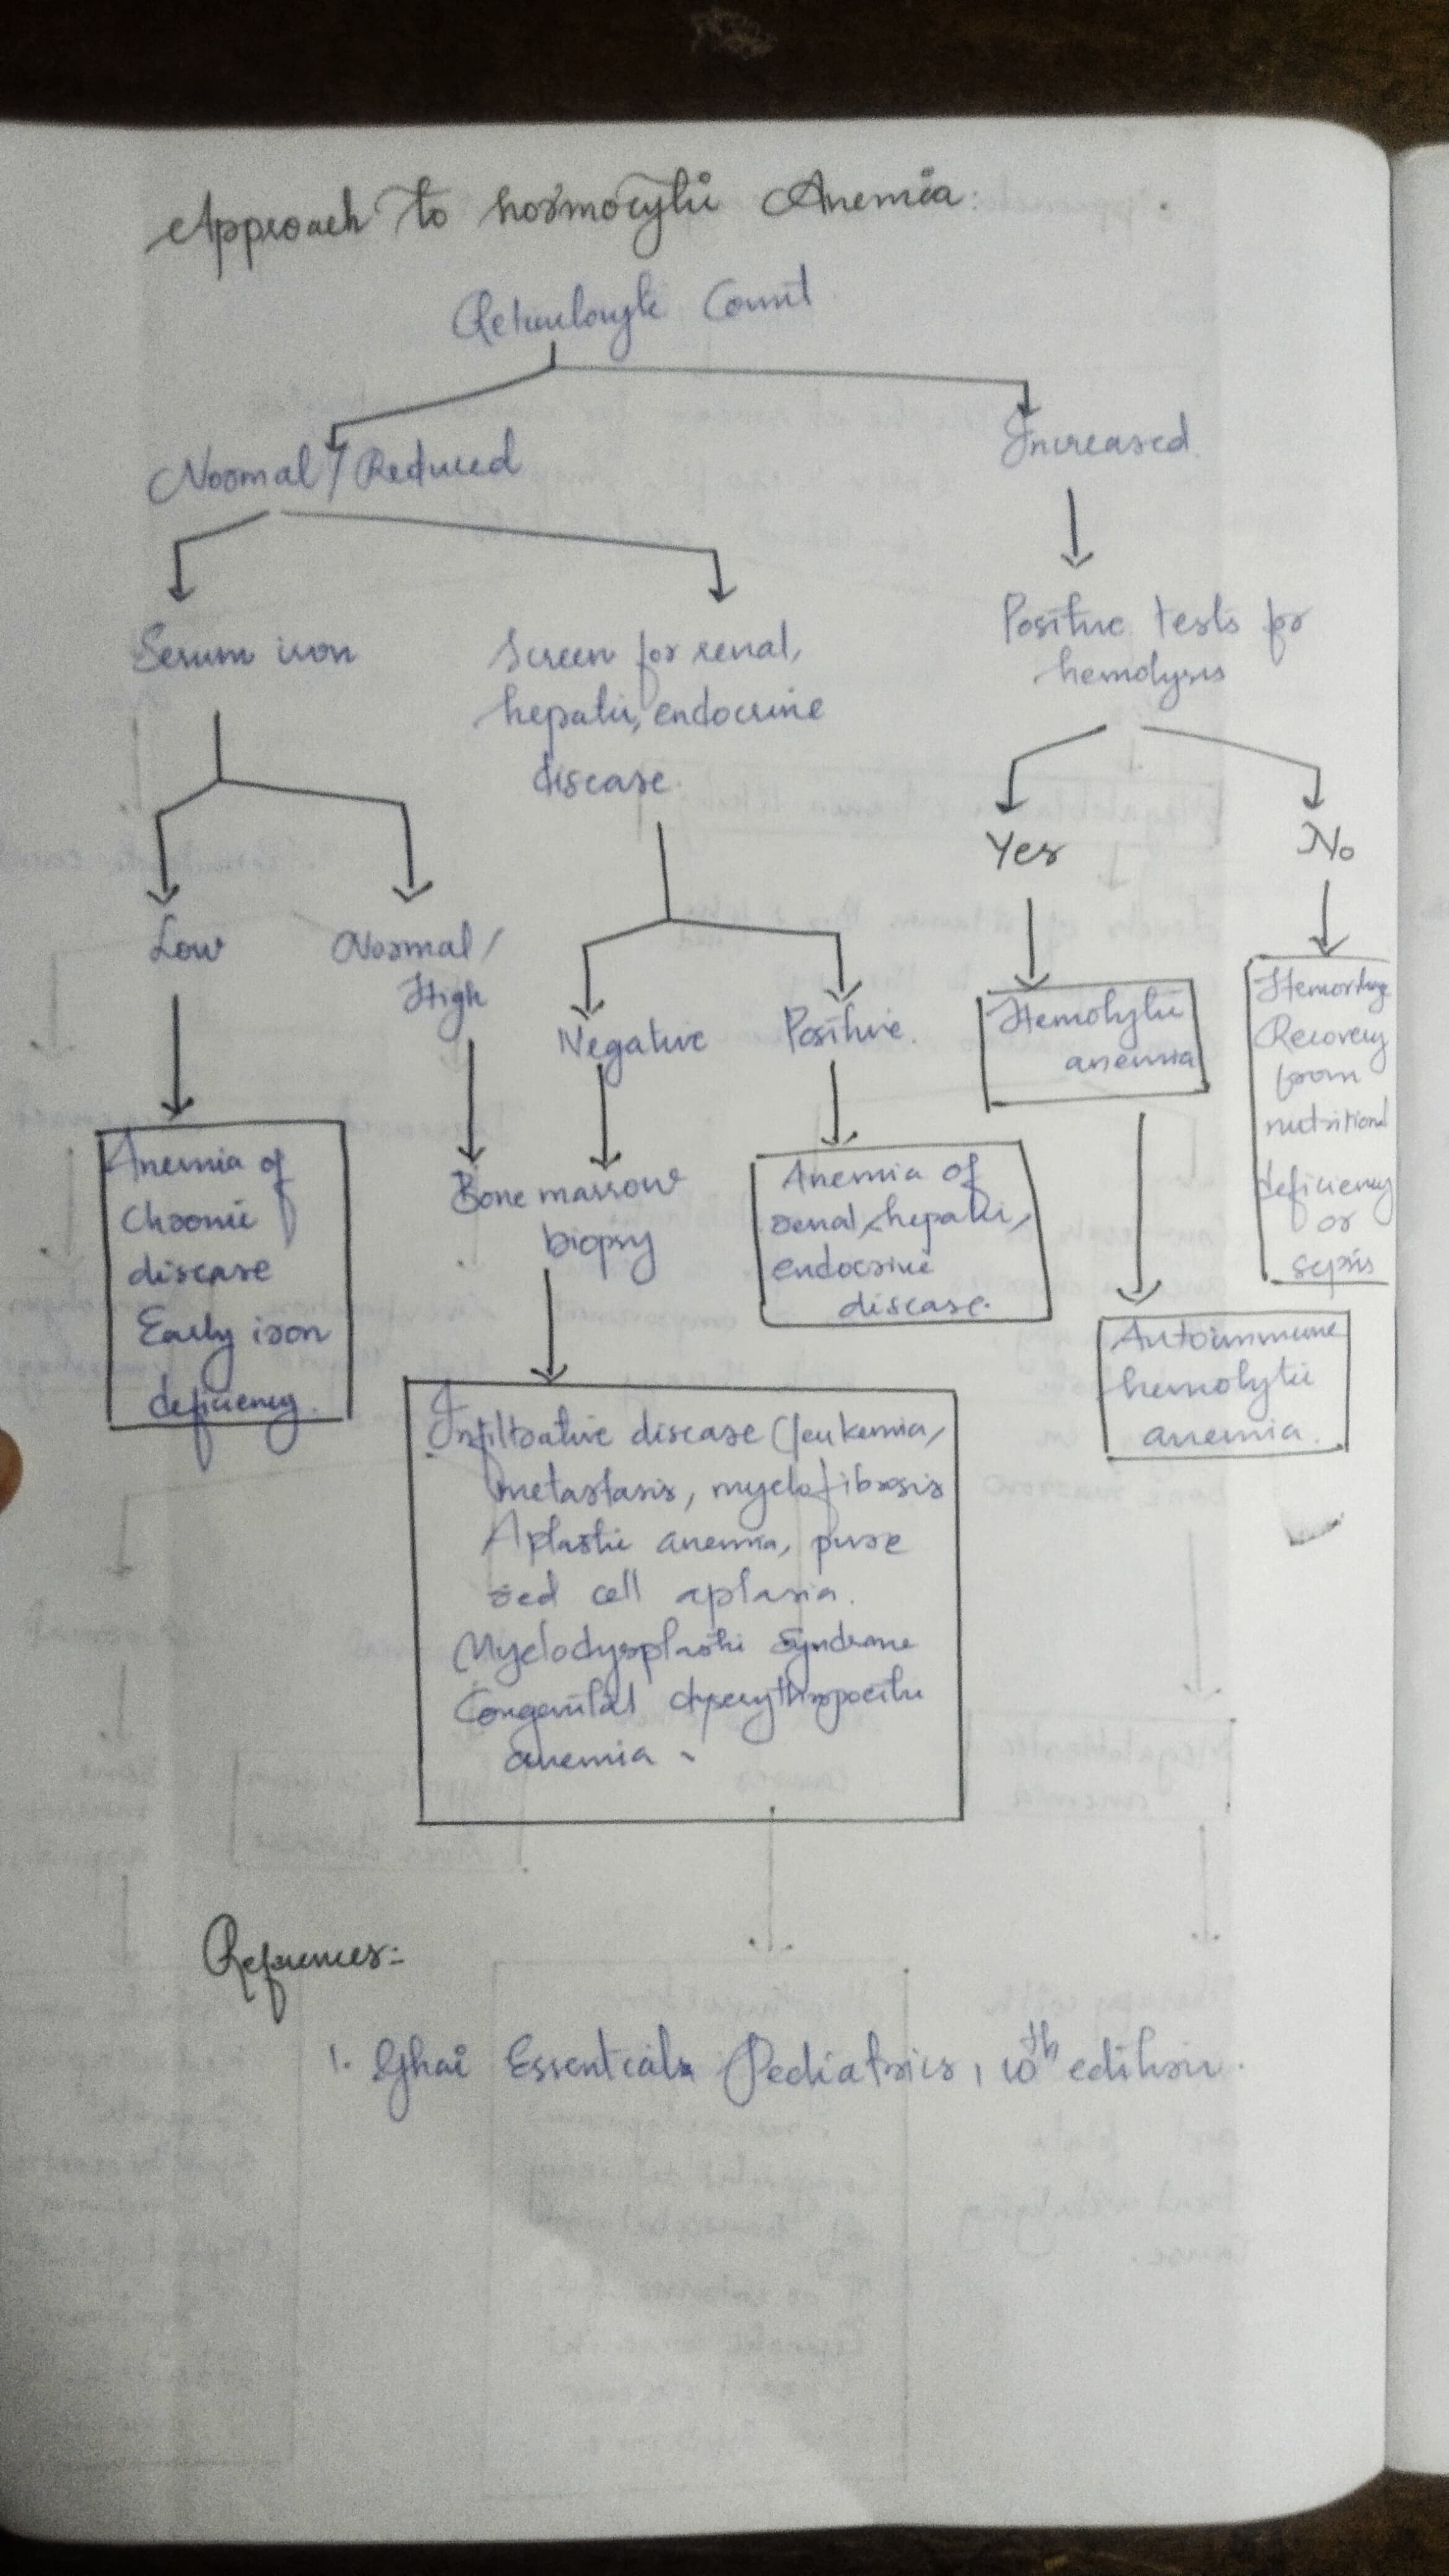 Approach to normocytic Anemia:
Reticulocyte Count
Normal / Reduced
Increased
Serum iron
Screen for renal,
hepatic, endocrine
disease.
Positive tests for
hemolysis
Yes
No
Low
Normal /
High
Negative
Positive.
Hemolytic
anemia
Hemorrhage
Recovery
from
nutritional
deficiency
or
sepsis
Anemia of
chronic
disease
Early iron
deficiency.
Bone marrow
biopsy
Anemia of
renal, hepatic,
endocrine
disease.
Autoimmune
hemolytic
anemia.
Infiltrative disease (leukemia,
metastasis, myelofibrosis
Aplastic anemia, pure
red cell aplasia.
Myelodysplastic syndrome
Congenital dyserythropoietic
anemia
References:-
1. Ghai Essentials Pediatrics, 10th edition.